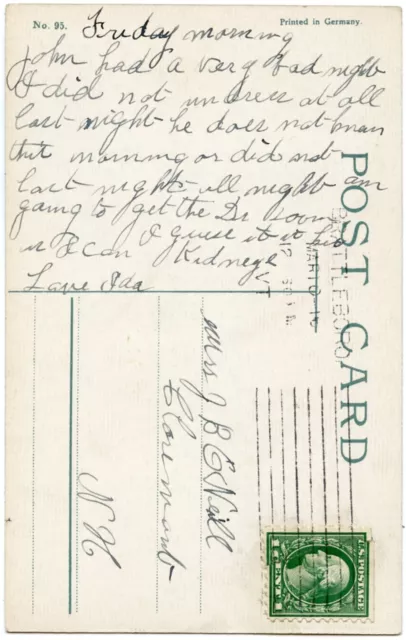 No. 95.
Printed in Germany.
Friday morning
John had a very bad night
I did not undress at all
last night he does not know
this morning or did not
last night all night am
going to get the Dr soon
as I can I guess it is his
Kidneys
Love Ida
POST CARD
BRATTLEBORO
MAR 10
12 30 P M
VT
Mrs J B O'Neill
Claremont
N H
U.S. POSTAGE
1 CENT 1